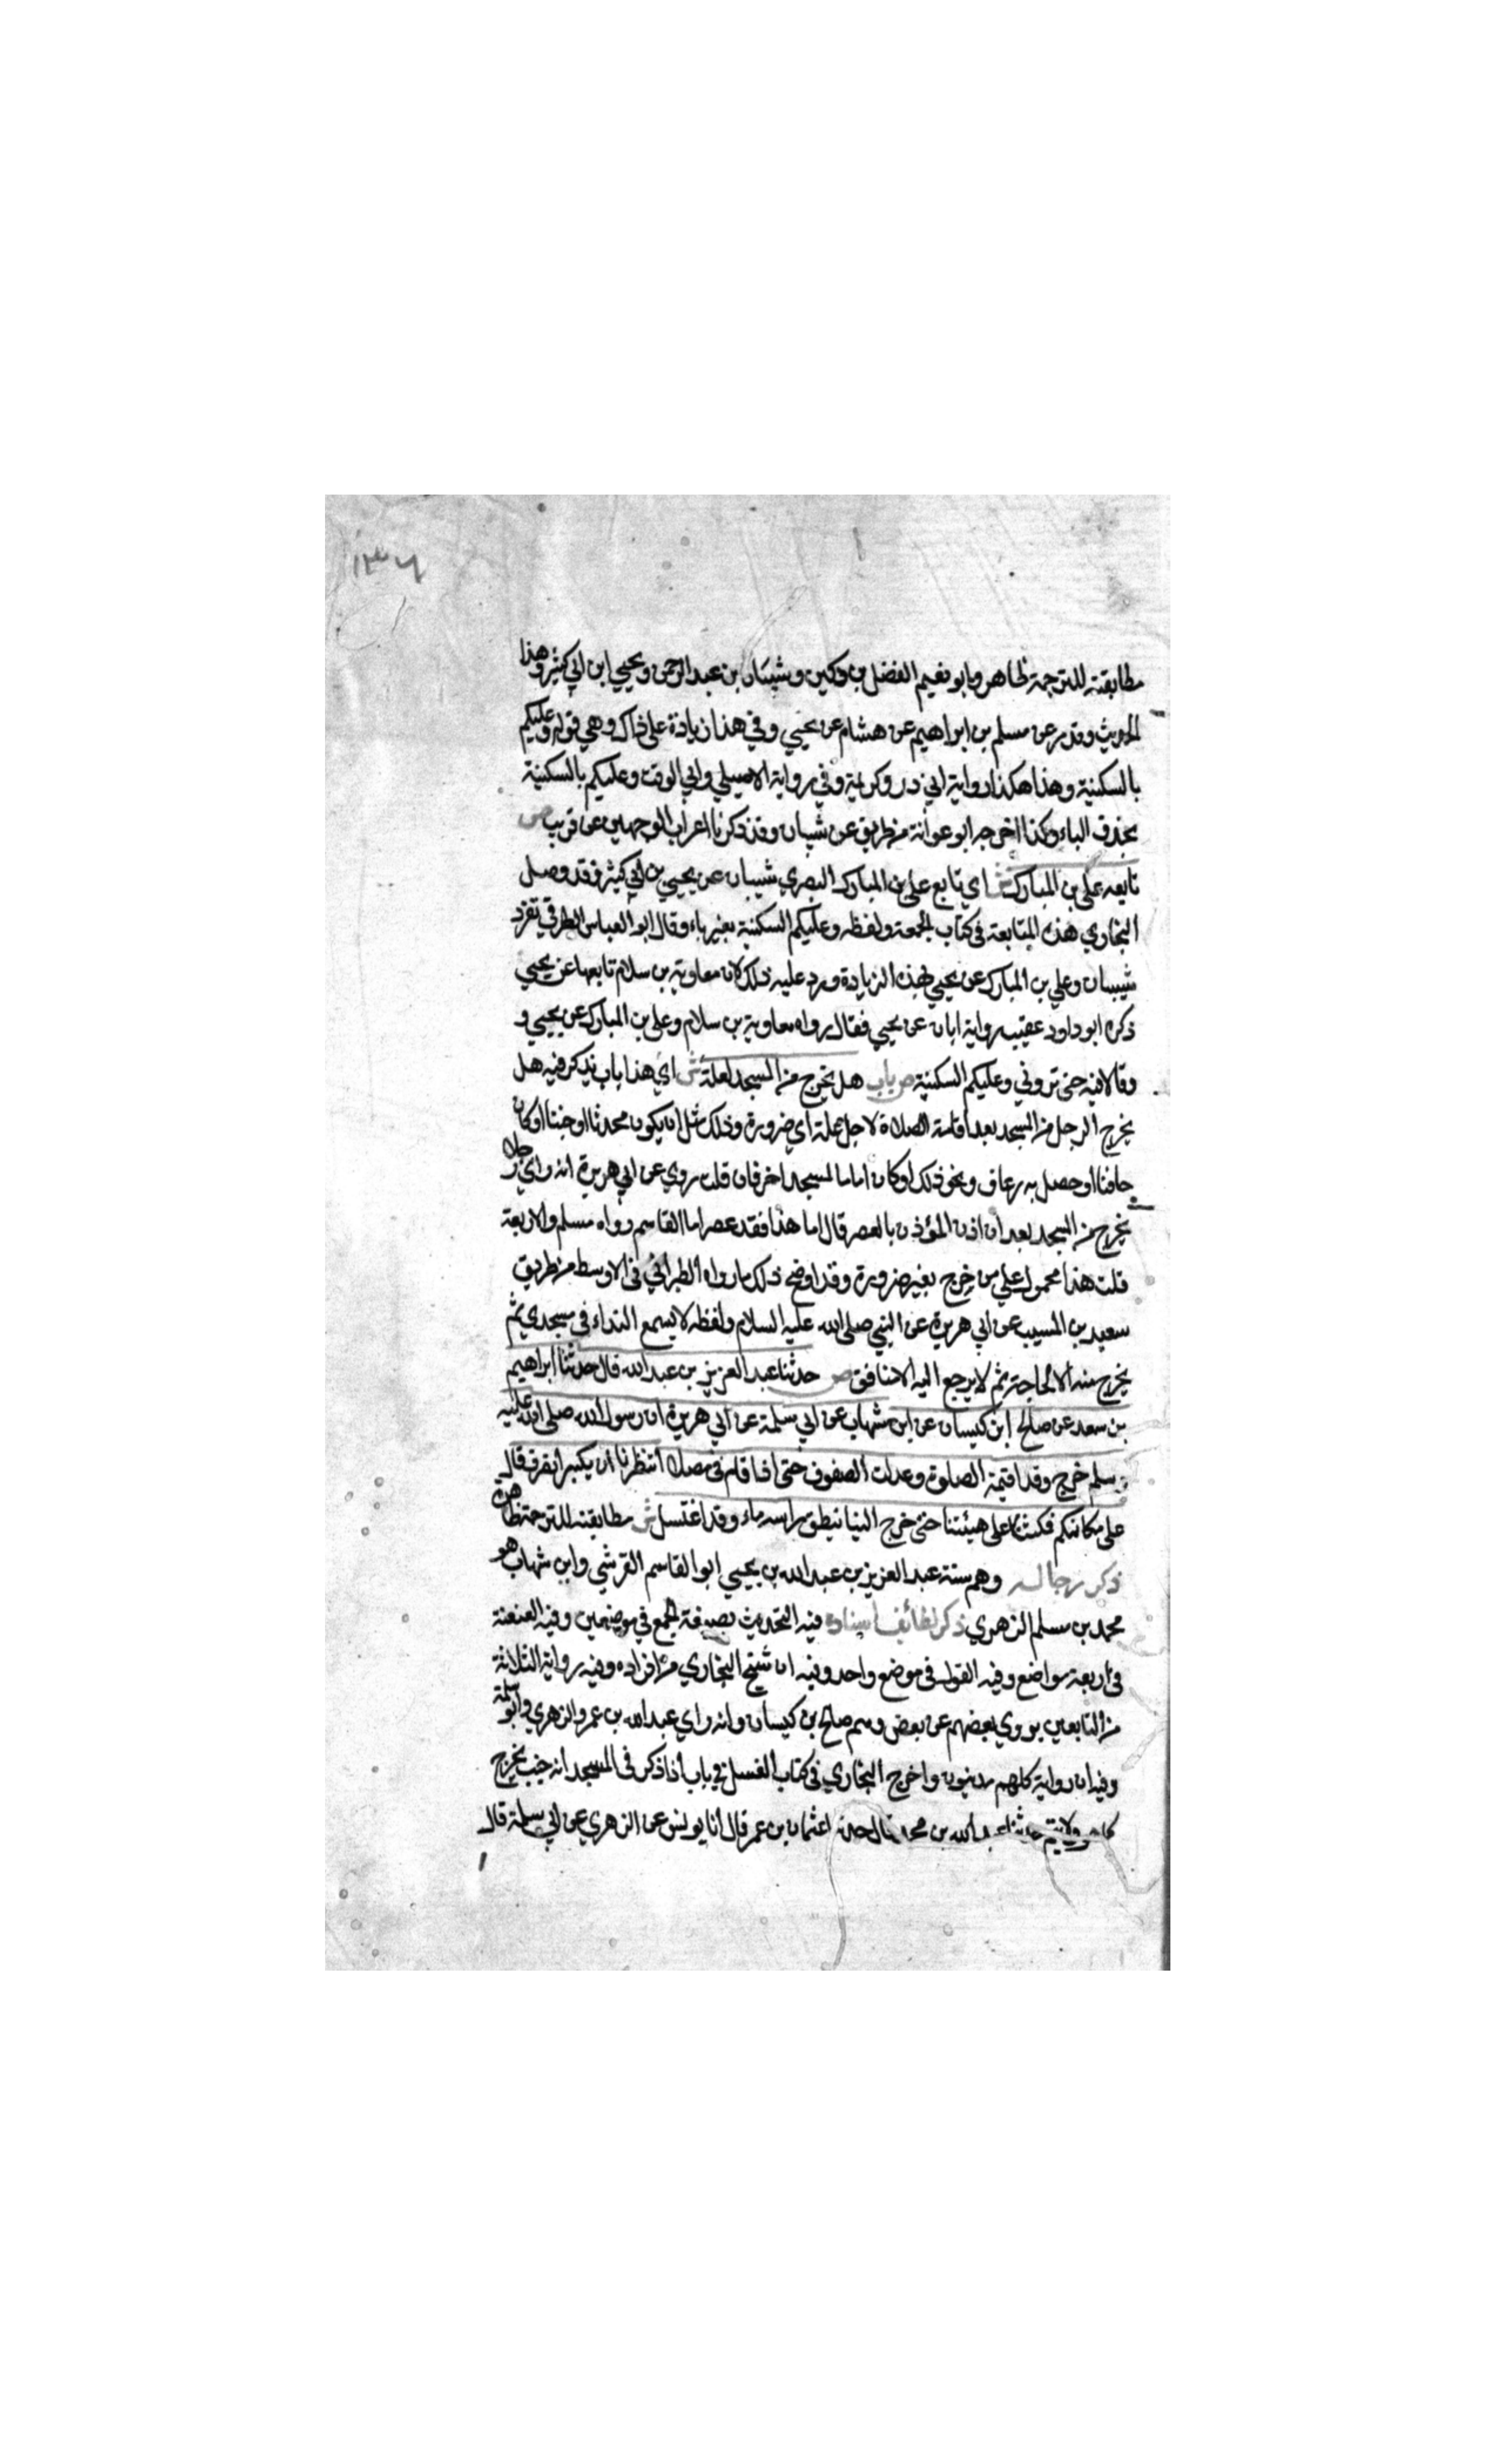 ١٣٦
مطابقته للترجمة ظاهر وابو نعيم الفضل بن دكين وشيبان بن عبد الرحمن ويحيى ابن ابي كثير وهذا
الحديث وقد مر عن مسلم بن ابراهيم عن هشام عن يحيي وفي هذا زيادة على ذاك وهي قوله وعليكم
بالسكينة وهذا هكذا رواية ابي ذر وكريمة وفي رواية الاصيلي وابي الوقت وعليكم بالسكينة
بحذف الباء وكذا اخرجه ابو عوانة من طريق عن شيبان وقد ذكرنا اعراب الوجهين عن قريب ص
تابعه علي بن المبارك ش اي تابع علي بن المبارك البصري شيبان عن يحيي بن ابي كثير فقد وصل
البخاري هذه المتابعة في كتاب الجمعة ولفظه وعليكم السكينة بغير باء وقال ابو العباس الطرقي تفرد
شيبان وعلي بن المبارك عن يحيي بهذه الزيادة ورد عليه ذلك لان معاوية بن سلام تابعها عن يحيي
ذكره ابو داود عقيب رواية ابان عن يحيي فقال رواه معاوية بن سلام وعلي بن المبارك عن يحيي و
وقالا فيه حتى تروني وعليكم السكينة ص باب هل يخرج من المسجد لعلة ش اي هذا باب يذكر فيه هل
يخرج الرجل من المسجد بعد اقامة الصلاة لاجل علة اي ضرورة وذلك مثل ان يكون محدثا او جنبا او كان
حاقنا او حصل به رعاف ونحو ذلك او كان اماما لمسجد اخر فان قلت روي عن ابي هريرة انه راي رجلا
يخرج من المسجد بعد ان اذن المؤذن بالعصر قال اما هذا فقد عصر اما القاسم رواه مسلم والاربعة
قلت هذا محمول علي من خرج بغير ضرورة وقد اوضح ذلك ما رواه الطبراني في الاوسط من طريق
سعيد بن المسيب عن ابي هريرة عن النبي صلى الله عليه السلام ولفظه لا يسمع النداء في مسجدي ثم
يخرج منه الا لحاجة ثم لا يرجع اليه الا منافق ص حدثنا عبد العزيز بن عبد الله قال حدثنا ابراهيم
بن سعد عن صالح ابن كيسان عن ابن شهاب عن ابي سلمة عن ابي هريرة ان رسول الله صلى الله عليه
وسلم خرج وقد اقيمة الصلوة وعدلت الصفوف حتى اذا قام في مصلاه انتظرنا ان يكبر انصرف قال
على مكانكم فمكثنا على هيئتنا حتى خرج الينا ينطق راسه ماء وقد اغتسل ش مطابقته للترجمة ظاهرة
ذكر رجاله وهم ستة عبد العزيز بن عبد الله بن يحيي ابو القاسم القرشي وابن شهاب هو
محمد بن مسلم الزهري ذكر لطائف اسناده فيه التحديث بصيغة الجمع في موضعين وفيه العنعنة
في اربعة مواضع وفيه القول في موضع واحد وفيه ان شيخ البخاري من افراده وفيه رواية الثلاثة
من التابعين يروي بعضهم عن بعض وهم صالح بن كيسان وانه راي عبد الله بن عمر والزهري وابو سلمة
وفيه ان رواية كلهم مدنيون واخرج البخاري في كتاب الغسل في باب اذا ذكر في المسجد انه جنب يخرج
كما هو ولا يتيم حدثنا عبد الله بن محمد قال حدثنا عثمان بن عمر قال انا يونس عن الزهري عن ابي سلمة قال